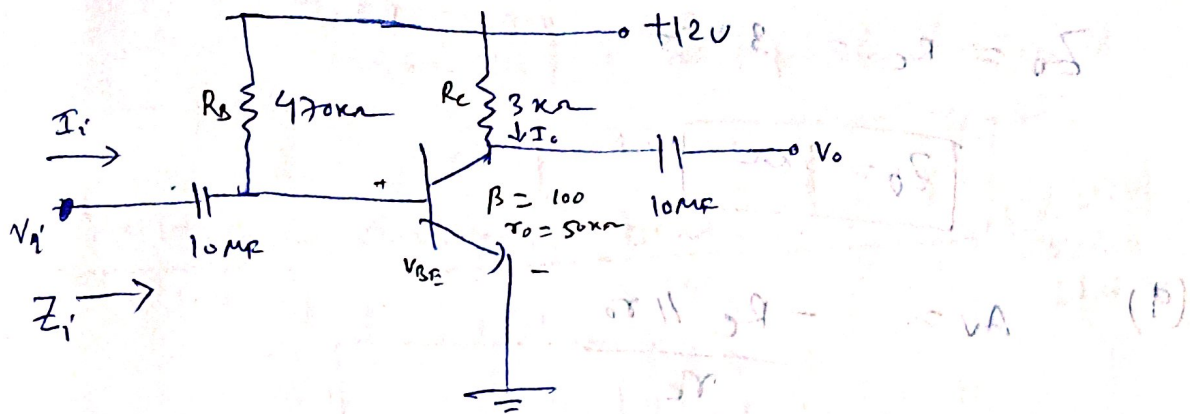 +12V
R_B 470KΩ
R_C 3KΩ
I_i
↓I_o
V_o
β = 100
r_o = 50KΩ
10MF
V_i
10MF
V_BE
Z_i